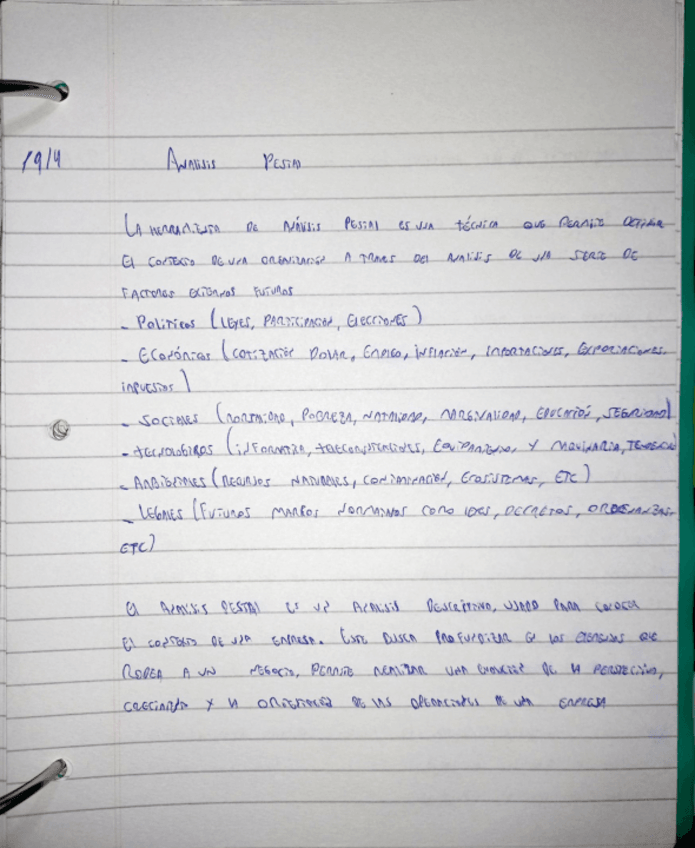 19/4 Analisis Pestal
La herramienta de análisis Pestal es una técnica que permite definir
el contexto de una organización a traves del analisis de una serie de
factores externos futuros
- Politicos (leyes, participacion, elecciones)
- Económicos (cotización dolar, empleo, inflación, importaciones, exportaciones,
impuestos)
- Sociales (mortalidad, pobreza, natalidad, marginalidad, educación, seguridad)
- Tecnologicos (informatica, telecomunicaciones, equipamiento, y maquinaria,
- Ambientales (recursos naturales, contaminación, ecosistemas, etc)
- Legales (futuros marcos normativos como leyes, decretos, ordenanzas,
etc)
El analisis Pestal es un analisis descriptivo, usado para conocer
el contexto de una empresa. Este busca profundizar en los que
rodea a un negocio, permite realizar una de la
crecimiento y la de las operaciones de una empresa